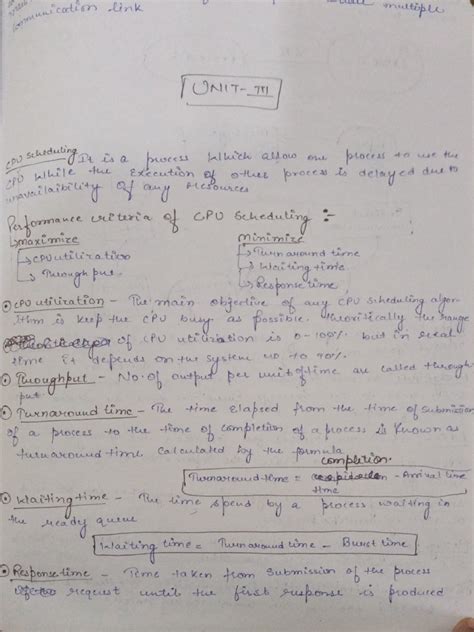 multiple
communication link
UNIT-III
CPU Scheduling It is a process which allow one process to use the
CPU while the execution of other process is delayed due to
unavailaibility of any resources
Performance criteria of CPU Scheduling :-
Maximize Minimize
CPU utilization Turnaround time
Throughput. Waiting time.
Response time
CPU utilization - The main objective of any CPU scheduling algor-
ithm is keep the CPU busy as possible. Theoritically the range
of CPU utilization is 0-100% but in real
time it depends on the system 40 to 90%.
Throughput - No. of output per unit of time are called through-
put.
Turnaround time - The time elapsed from the time of submission
of a process to the time of completion of a process is known as
turnaround time calculated by the formula
Turnaround time = completion time - Arrival time
Waiting time - The time spend by a process waiting in
the ready queue
Waiting time = Turnaround time - Burst time
Response time - Time taken from submission of the process
request until the first response is produced